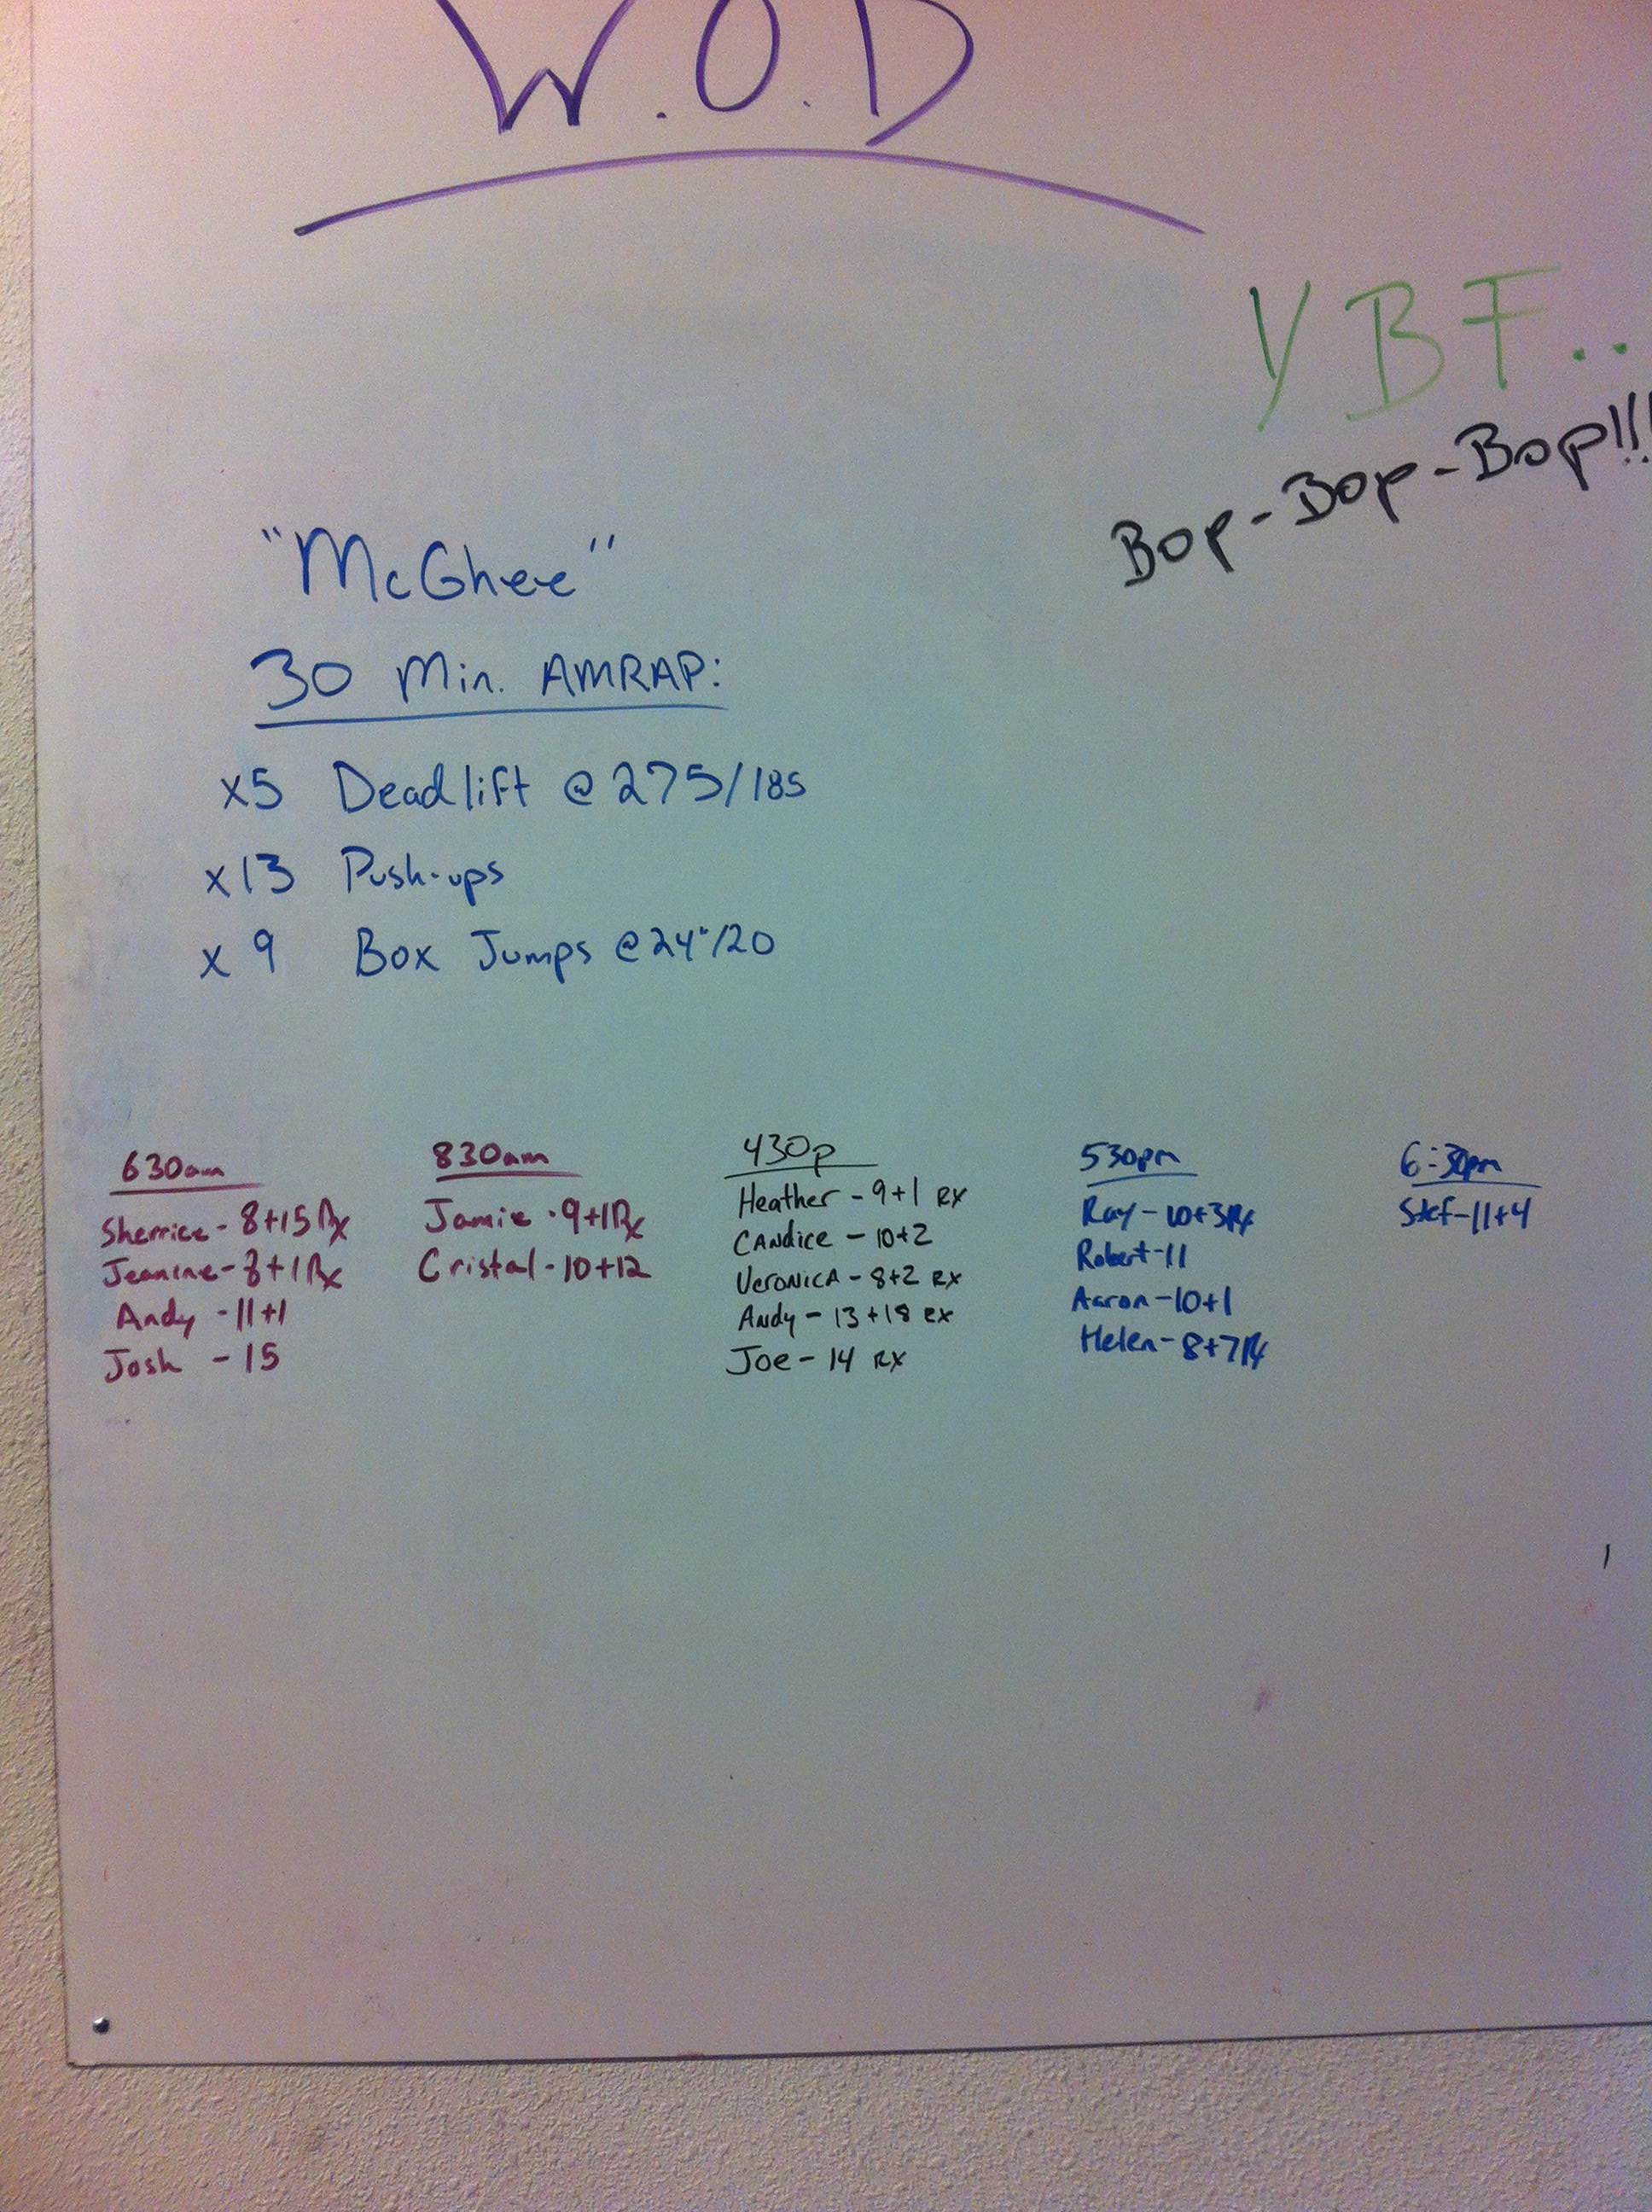 W.O.D
YBF..
Bop-Bop-Bop!!!
"McGhee"
30 Min. AMRAP:
x5 Deadlift @ 275/185
x13 Push-ups
x 9 Box Jumps @ 24"/20
630am
Sherrice - 8+15 Rx
Jeanine - 8+1 Rx
Andy - 11+1
Josh - 15
830am
Jamie - 9+1 Rx
Cristal - 10+12
430p
Heather - 9+1 RX
CANdice - 10+2
VeroNicA - 8+2 RX
Andy - 13+18 RX
Joe - 14 RX
530pm
Ray - 10+3 Rx
Robert - 11
Aaron - 10+1
Helen - 8+7 Rx
6:30pm
Stef - 11+4